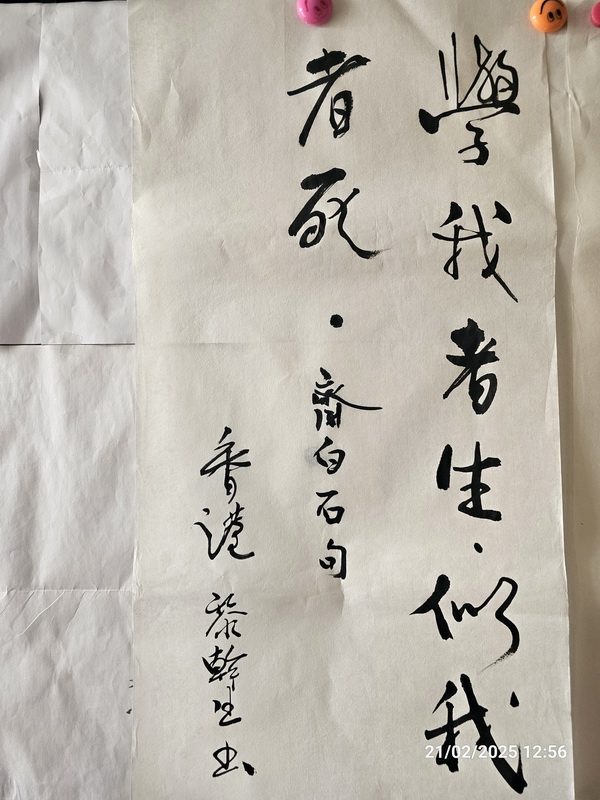 學我者生·似我
者死·齊白石句
香港 黎幹生書
21/02/2025 12:56